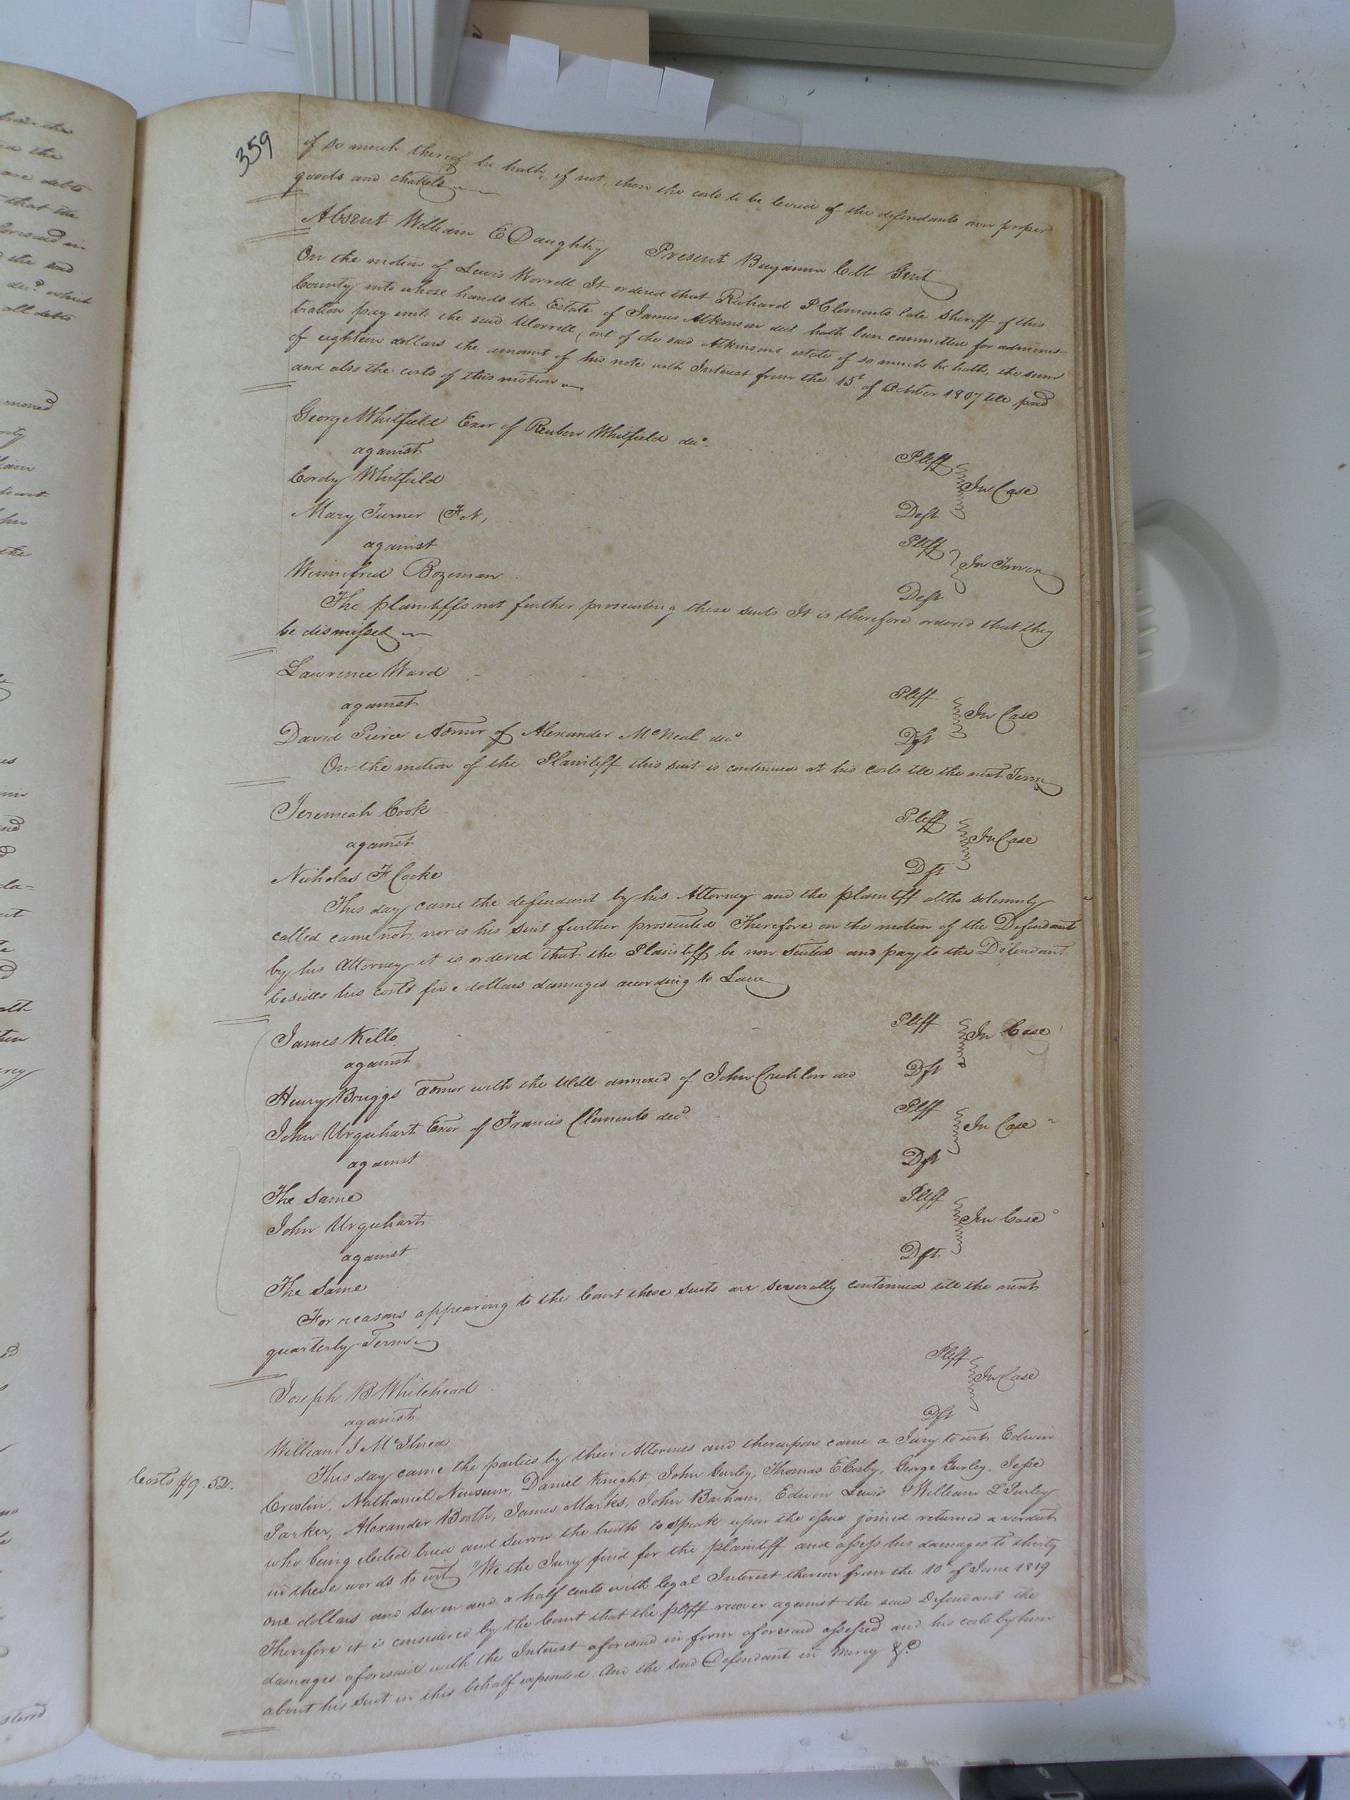 359
of so much thereof he hath, if not, then the costs to be levied of the defendants own proper
goods and chattels
Absent William E Daughtry Present Benjamin Cobb Gent
On the motion of Lewis Worrell It ordered that Richard P Clements late Sheriff of this
County into whose hands the Estate of James Atkinson decd hath been committed for adminis-
tration pay unto the said Worrell, out of the said Atkinsons estate if so much he hath, the sum
of eighteen dollars the amount of his note with Interest from the 15t of October 1807 till paid
and also the costs of this motion
George Whitfield Exor of Reuben Whitfield decd. Pltff
against In Case
Cordy Whitfield Deft
Mary Turner (F N, Pltff
against In Trover
Winnifred Bozeman Deft
The plaintiffs not further prosecuting these suits It is therefore ordered that they
be dismissed
Lawrence Ward Pltff
against In Case
David Pierce Admor of Alexander McNeal decd Dft
On the motion of the Plaintiff this suit is continued at his costs till the next Term
Jeremiah Cook Pltff
against In Case
Nicholas F Cooke Dft
This day came the defendant by his Attorney and the plaintiff altho solemnly
called came not, nor is his suit further prosecuted Therefore on the motion of the Defendant
by his Attorney it is ordered that the Plaintiff be non Suited and pay to the Defendant
besides his costs five dollars damages according to Law
James Kello Pltff
against In Case
Henry Briggs admor with the Will annexed of John Crichlow decd Dft
John Urquhart Exor of Francis Clements decd Pltff
against In Case
The Same Dft
John Urquhart Pltff
against In Case
The Same Dft.
For reasons appearing to the Court these suits are severally continued till the next
quarterly Term
Joseph B Whitehead Pltff
against In Case
William J Dft
Costs $9.52. This day came the parties by their Attornies and thereupon came a Jury to wit Edwin
Nathaniel Newsum, Daniel Knight John Gurley, Thomas E George Gurley, Jesse
Parker, Alexander Booth, James Marks, John Barham, Edwin Lewis & William L
who being elected tried and sworn the truth to speak upon the issue joined returned a verdict
in these words to wit, "We the Jury find for the plaintiff and assess his damages to thirty
one dollars and seven and a half cents with legal Interest thereon from the 10th of June 1819
Therefore it is considered by the Court that the pltff recover against the said Defendant the
damages aforesaid with the Interest aforesaid in form aforesaid assessed and his costs by him
about his suit in this behalf expended. And the said Defendant in Mercy &c